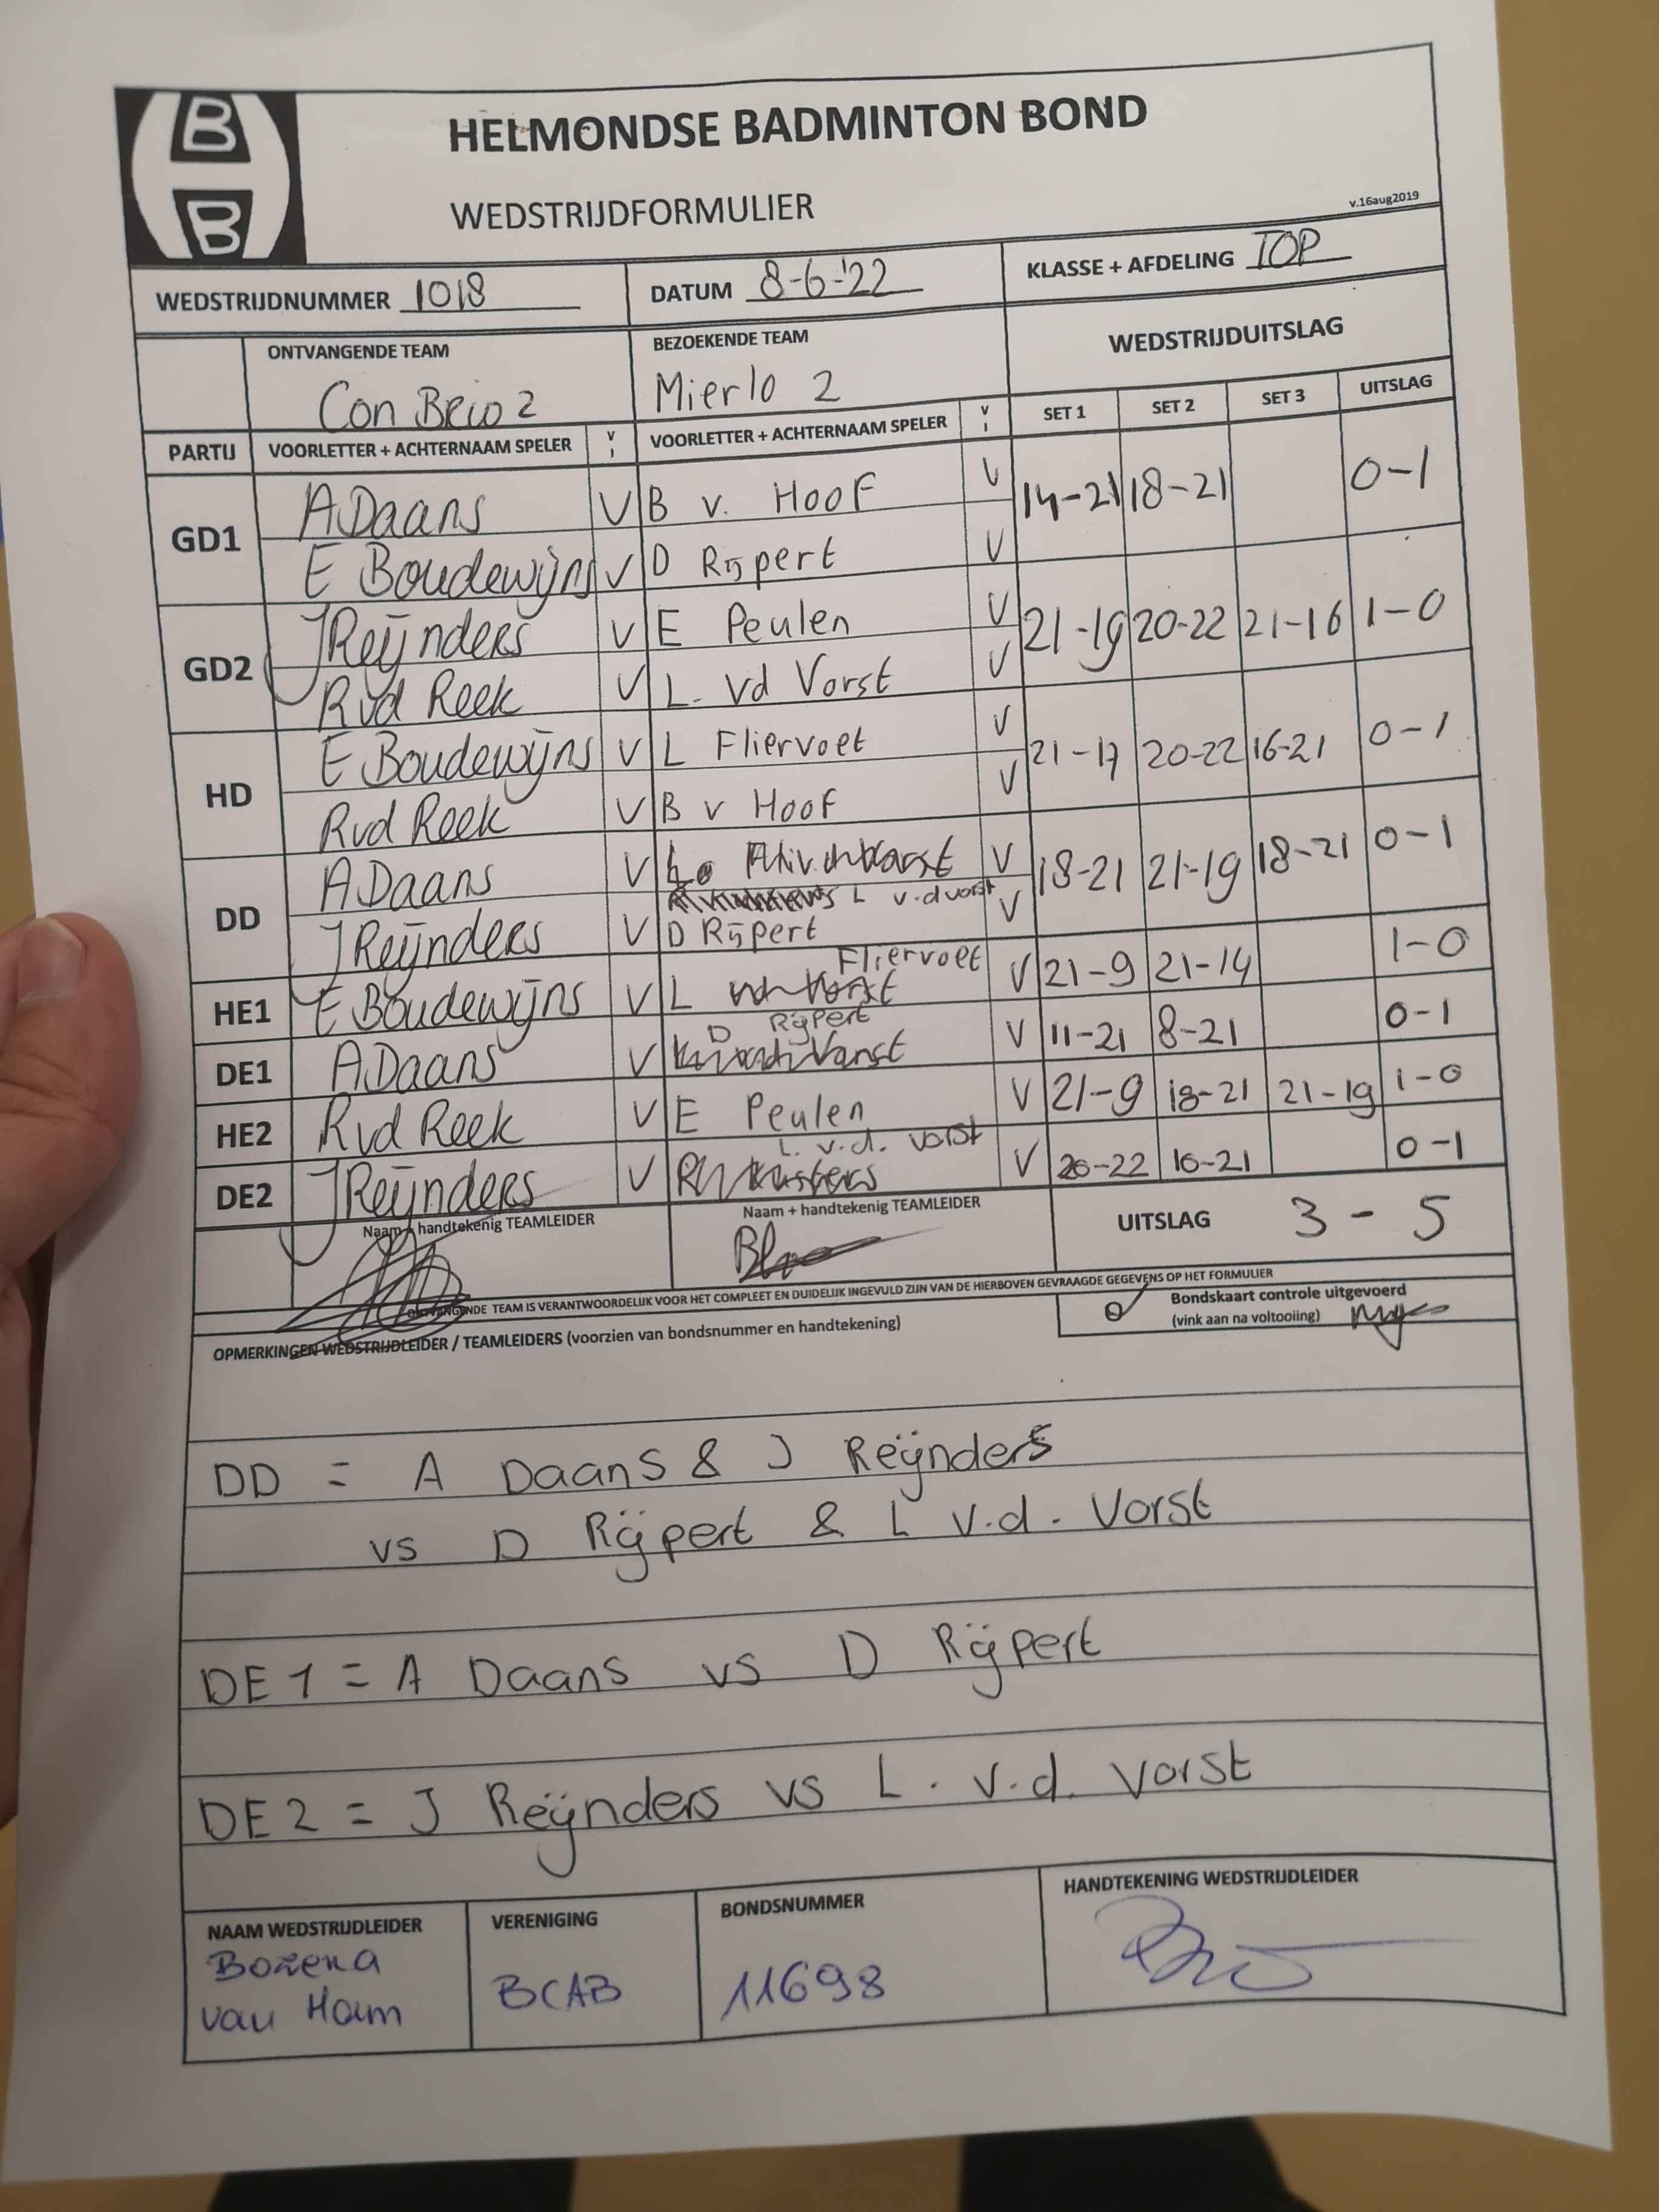 B
B
HELMONDSE BADMINTON BOND
WEDSTRIJDFORMULIER
v.16aug2019
WEDSTRIJDNUMMER 1018 DATUM 8-6-'22 KLASSE + AFDELING TOP
ONTVANGENDE TEAM BEZOEKENDE TEAM WEDSTRIJDUITSLAG
Con Brio 2 Mierlo 2
PARTIJ VOORLETTER + ACHTERNAAM SPELER V I VOORLETTER + ACHTERNAAM SPELER V I SET 1 SET 2 SET 3 UITSLAG
GD1 A Daans V B v. Hoof V 14-21 18-21 0-1
E Boudewijns V D Rijpert V
GD2 J Reijnders V E Peulen V 21-19 20-22 21-16 1-0
R vd Reek V L. vd Vorst V
HD E Boudewijns V L Fliervoet V 21-17 20-22 16-21 0-1
R vd Reek V B v Hoof V
DD A Daans V V 18-21 21-19 18-21 0-1
L v.d vorst V
J Reijnders V D Rijpert
Fliervoet
HE1 E Boudewijns V L V 21-9 21-14 1-0
D Rijpert
DE1 A Daans V V 11-21 8-21 0-1
HE2 R vd Reek V E Peulen V 21-9 18-21 21-19 1-0
L. v.d. vorst
DE2 J Reijnders V V 20-22 16-21 0-1
Naam + handtekenig TEAMLEIDER Naam + handtekenig TEAMLEIDER UITSLAG 3 - 5
ONTVANGENDE TEAM IS VERANTWOORDELIJK VOOR HET COMPLEET EN DUIDELIJK INGEVULD ZIJN VAN DE HIERBOVEN GEVRAAGDE GEGEVENS OP HET FORMULIER
Bondskaart controle uitgevoerd
(vink aan na voltooiing)
OPMERKINGEN WEDSTRIJDLEIDER / TEAMLEIDERS (voorzien van bondsnummer en handtekening)
DD = A Daans & J Reijnders
vs D Rijpert & L v.d. Vorst
DE 1 = A Daans vs D Rijpert
DE 2 = J Reijnders vs L. v.d. Vorst
NAAM WEDSTRIJDLEIDER VERENIGING BONDSNUMMER HANDTEKENING WEDSTRIJDLEIDER
Bożena
van Ham BCAB 11698